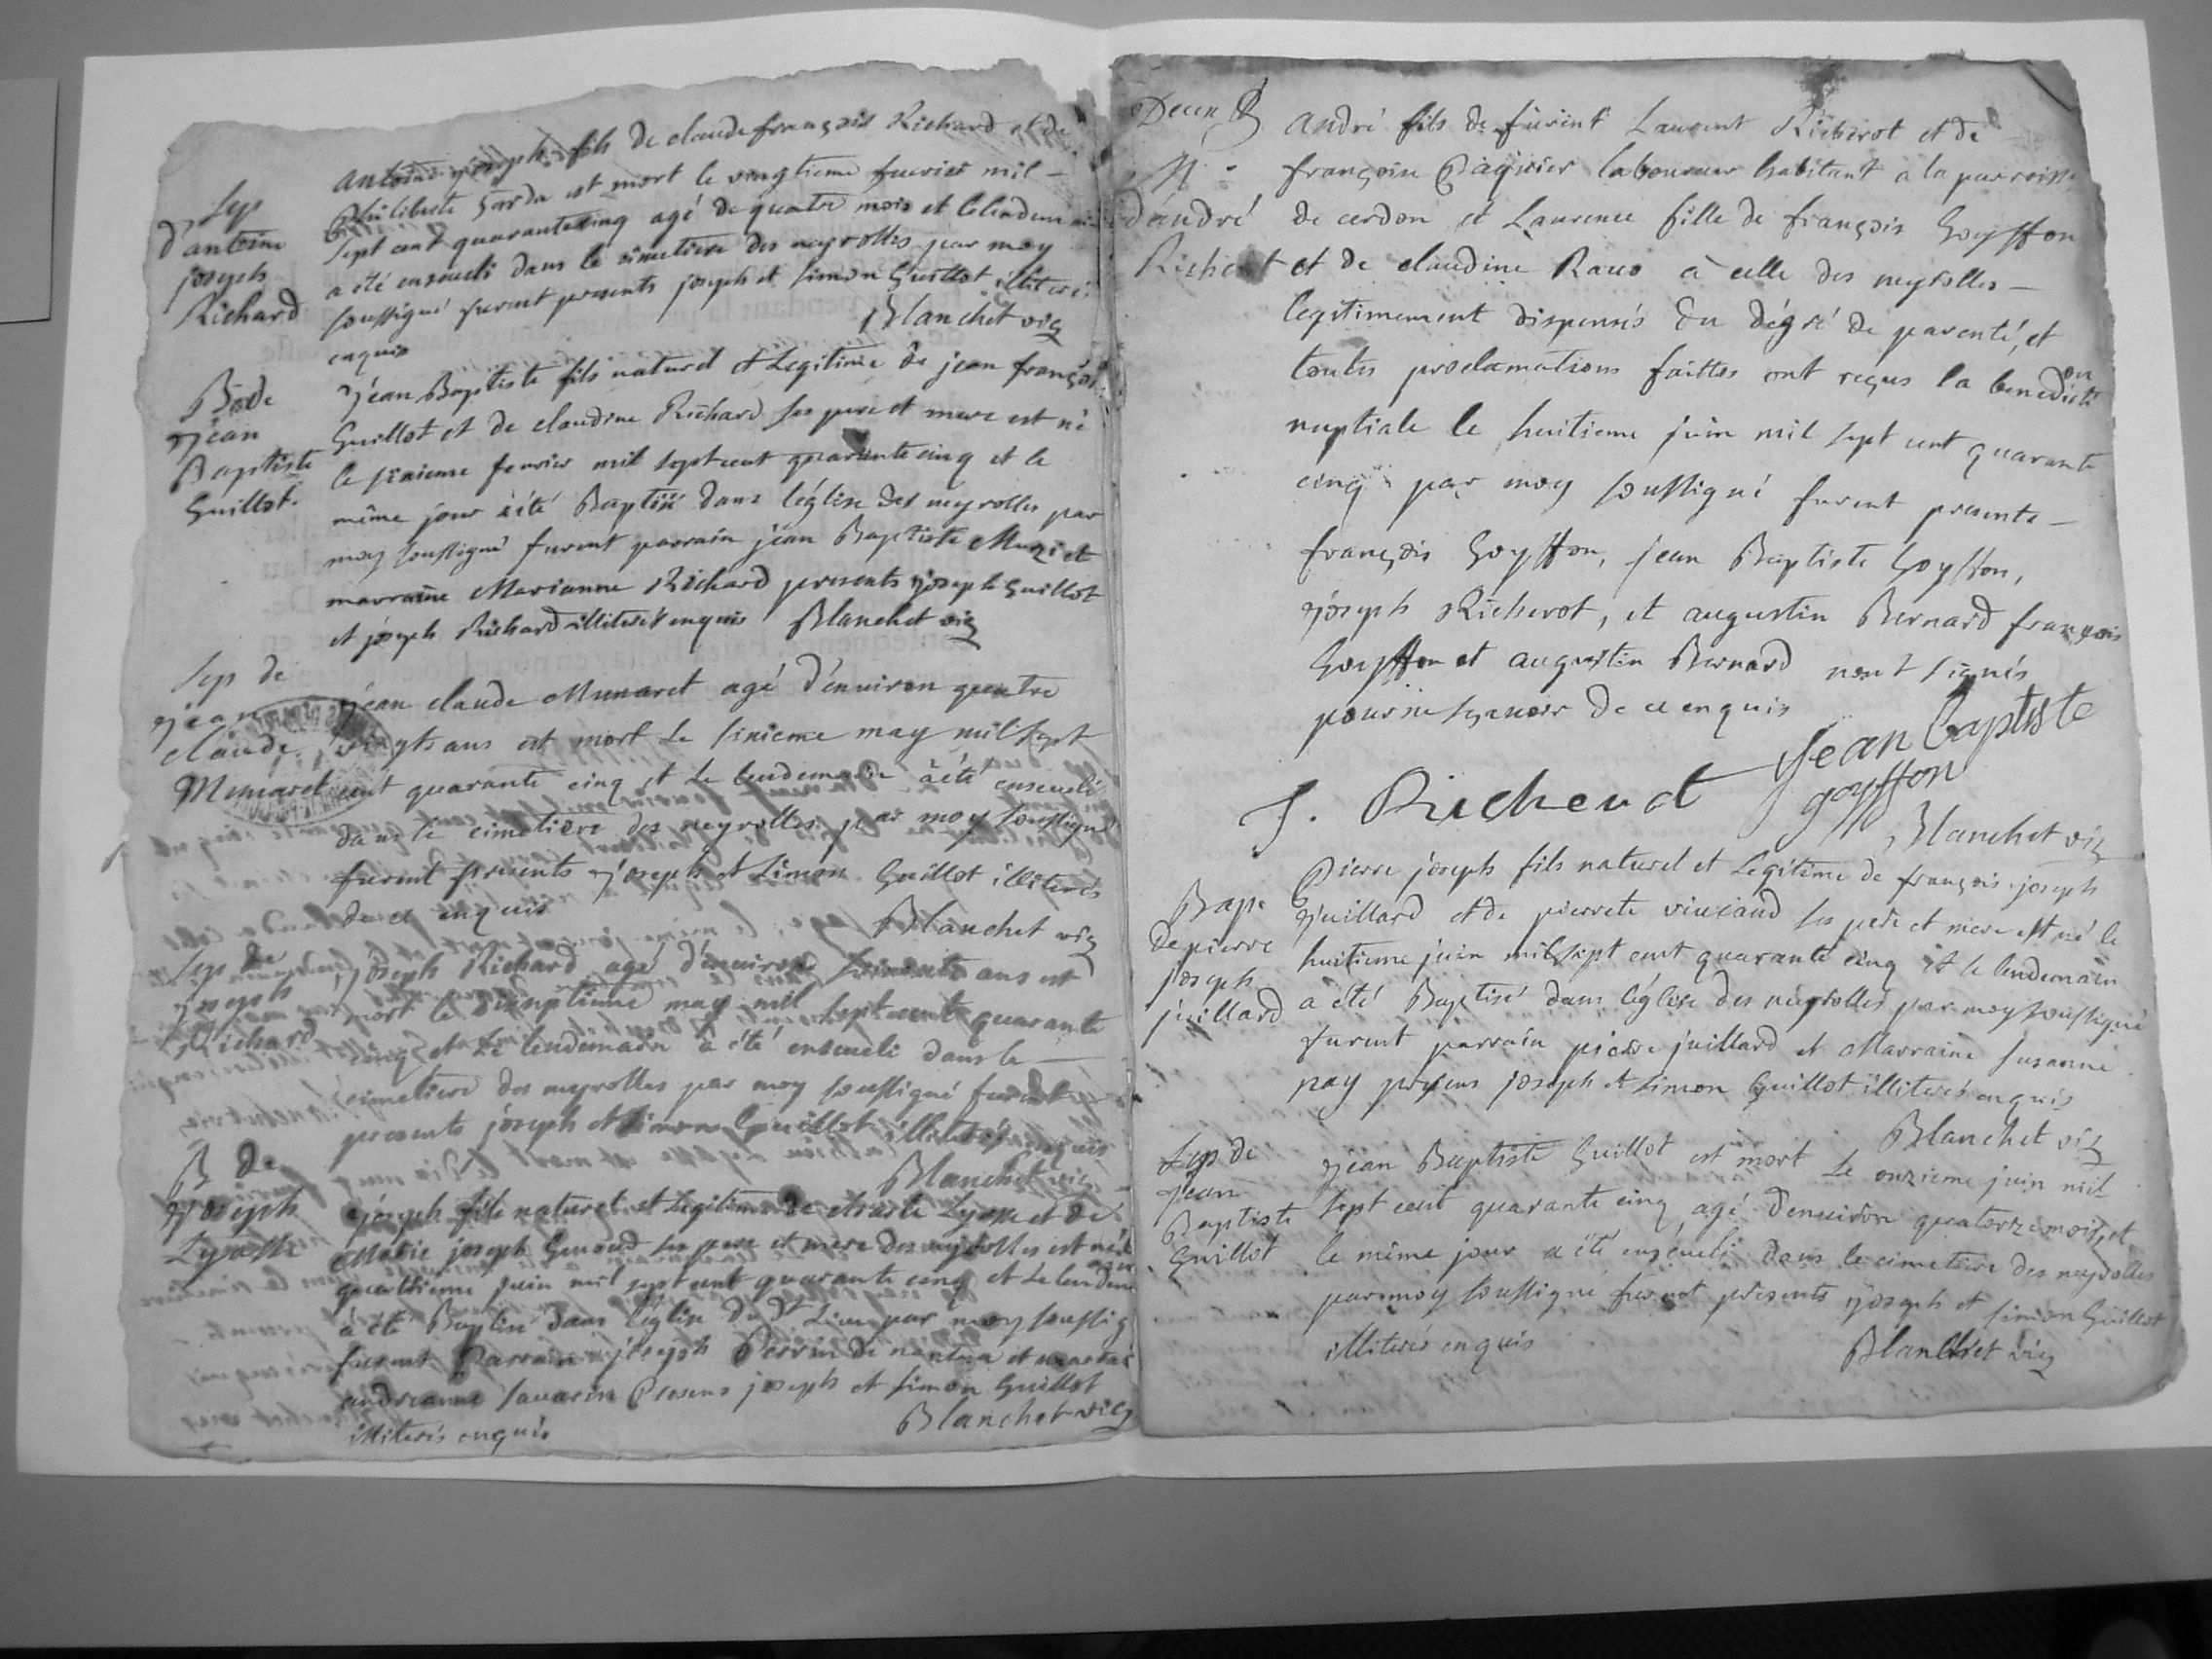 Sep
d'antoine
joseph
Richard
antoine joseph fils de claude françois Richard et de
Philiberte Garda est mort le vingtieme fuvrier mil
sept cent quarantecinq agé de quatre mois et le lendemain
a eté enseveli dans le simetiere des neyrolles par moy
soussigné furent presents joseph et simon Guillot illiteré
enquis
Blanchet vic
B de
jean
Baptiste
Guillot
jean Baptiste fils naturel et Legitime de jean françois
Guillot et de claudine Richard ses pere et mere est né
le sixieme fevrier mil sept cent quarante cinq et le
même jour a été Baptisé dans l'église des neyrolles par
moy soussigné furent parrain jean Baptiste Muzi et
marraine Marianne Richard presents joseph Guillot
et joseph Richard illiterés enquis Blanchet vic
Sep de
jean
claude
Mumaret
jean claude Mumaret agé d'environ quatre
vingts ans est mort le sixieme may mil sept
cent quarante cinq et le lendemain a été enseveli
dans le cimetiere des neyrolles par moy soussigné
furent presents joseph et simon Guillot illiterés
de ce enquis
Blanchet vic
Sep de
joseph
Richard
joseph Richard agé d'environ soixante ans est
mort le may mil sept cent quarante
cinq et le lendemain a été enseveli dans le
cimetiere des neyrolles par moy soussigné furent
presents joseph et simon Guillot illiterés enquis
Blanchet vic
B de
joseph
Lysasse
joseph fils naturel et Legitime de et de
Marie joseph Genoud ses pere et mere des neyrolles est né le
quatrieme juin mil sept cent quarante cinq et le lendemain
a été Baptisé dans l'église du dt Lieu par moy soussig
furent Parrain joseph Perrin de nantua et marraine
andreanne savarin Presens joseph et simon Guillot
illiterés enquis
Blanchet vic
M
d'andré
Richerot
andré fils de furent Laurent Richerot et de
françoise laboureur habitant a la parroisse
de cerdon et Laurence fille de françois Goyffon
et de claudine Raux à celle des neyrolles
legitimement dispensés du dégré de parenté, et
toutes proclamations faittes ont reçus la benediction
nuptiale le huitieme juin mil sept cent quarante
cinq par moy soussigné furent presents
françois Goyffon, jean Baptiste Goyffon,
joseph Richerot, et augustin Bernard françois
Goyffon et augustin Bernard nont signés
pour ne sçavoir de ce enquis
J. Richerot
jean baptiste
goyffon
Blanchet vic
Bap
de pierre
joseph
juillard
Pierre joseph fils naturel et Legitime de françois joseph
juillard et de pierrete vivciand ses pere et mere est né le
huitieme juin mil sept cent quarante cinq et le lendemain
a été Baptisé dans l'église des neyrolles par moy soussigné
furent parrain pierre juillard et Marraine susanne
pay presens joseph et simon Guillot illiterés enquis
Blanchet vic
Sep de
jean
Baptiste
Guillot
jean Baptiste Guillot est mort le onzieme juin mil
sept cent quarante cinq agé d'environ quatorze mois, et
le même jour a été enseveli dans le cimetiere des neyrolles
par moy soussigné furent présents joseph et simon Guillot
illiterés enquis
Blanchet vic